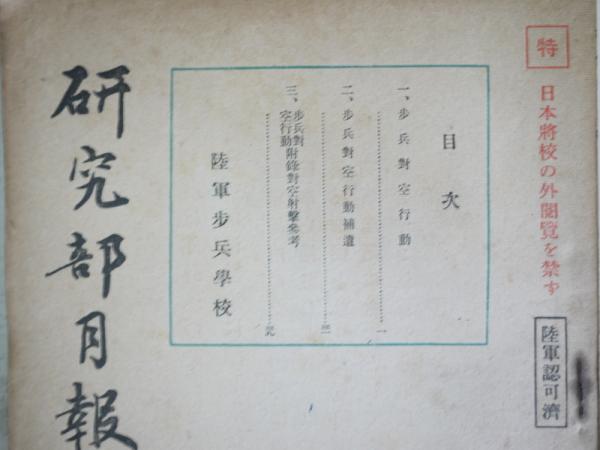 特
日本將校の外閲覽を禁ず
陸軍認可濟
目次
一、步兵對空行動………一
二、步兵對空行動補遺………
三、步兵對空行動附錄對空射擊參考………
陸軍步兵學校
研究部月報